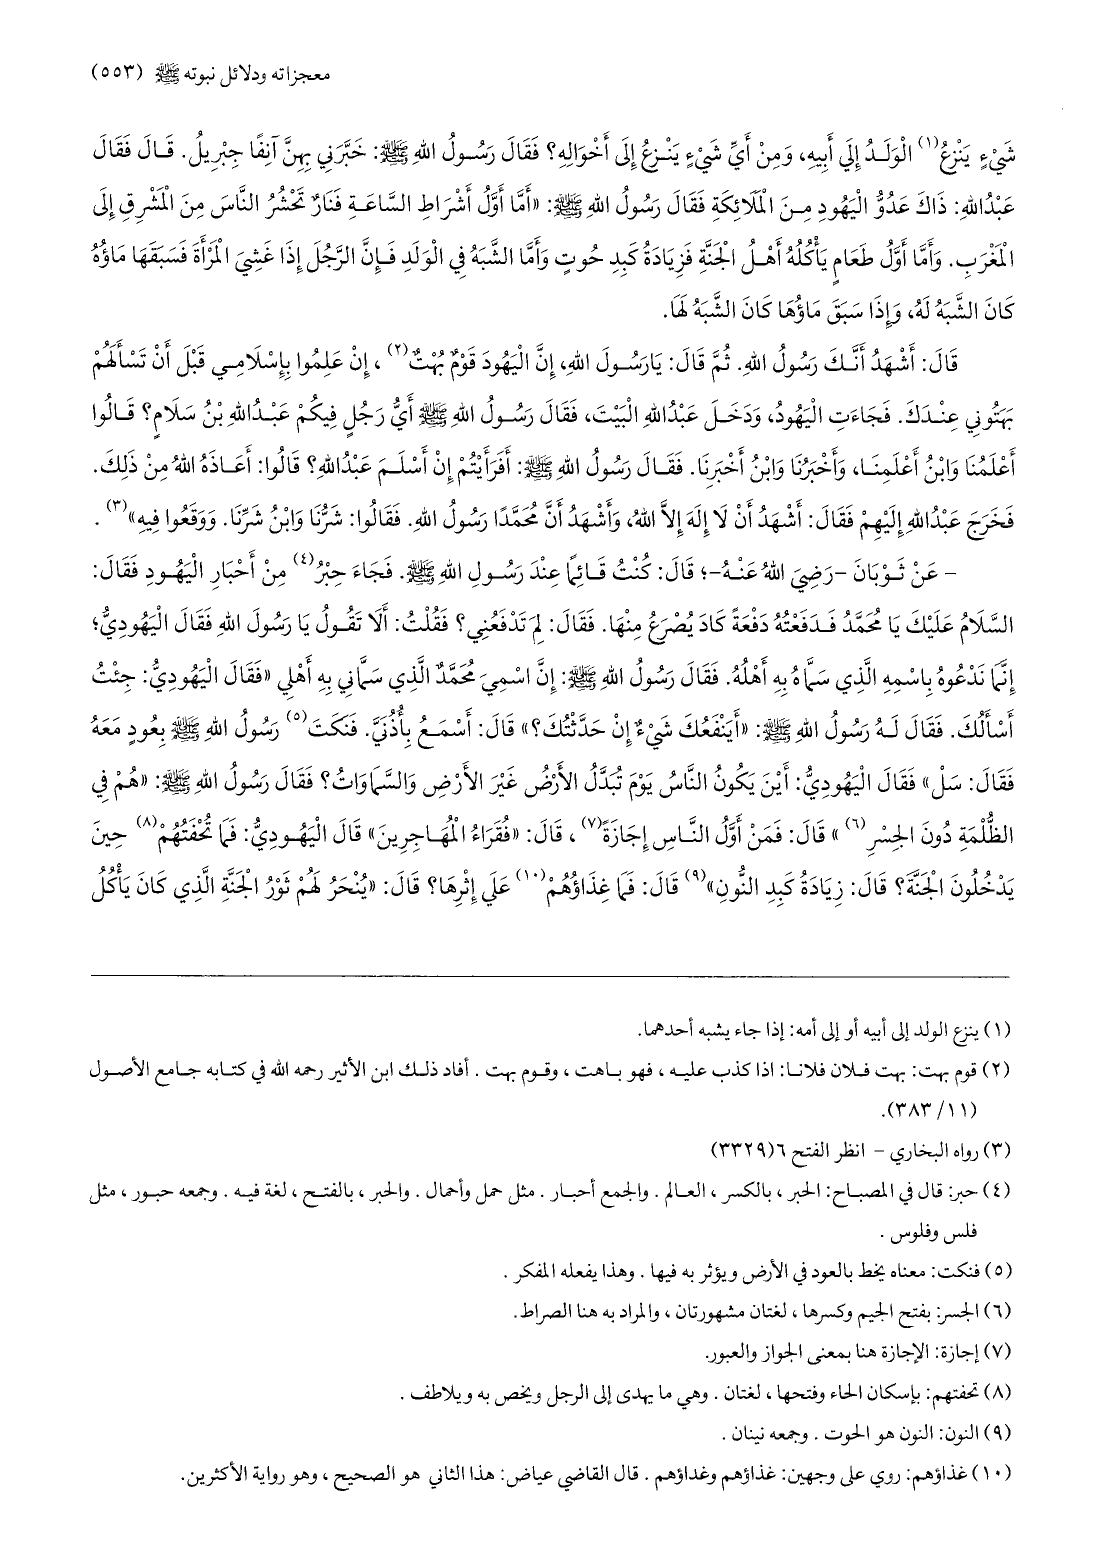 معجزاته ودلائل نبوته ﷺ (٥٥٣)
شَيْءٍ يَنْزِعُ(١) الْوَلَدُ إِلَي أَبِيهِ، وَمِنْ أَيِّ شَيْءٍ يَنْزِعُ إِلَى أَخْوَالِهِ؟ فَقَالَ رَسُولُ اللهِ ﷺ: خَبَّرَنِي بِهِنَّ آنِفًا جِبْرِيلُ. قَالَ فَقَالَ
عَبْدُاللهِ: ذَاكَ عَدُوُّ الْيَهُودِ مِنَ الْمَلَائِكَةِ فَقَالَ رَسُولُ اللهِ ﷺ: «أَمَّا أَوَّلُ أَشْرَاطِ السَّاعَةِ فَنَارٌ تَحْشُرُ النَّاسَ مِنَ الْمَشْرِقِ إِلَى
الْمَغْرَبِ. وَأَمَّا أَوَّلُ طَعَامٍ يَأْكُلُهُ أَهْلُ الْجَنَّةِ فَزِيَادَةُ كَبِدِ حُوتٍ وَأَمَّا الشَّبَهُ فِي الْوَلَدِ فَإِنَّ الرَّجُلَ إِذَا غَشِيَ الْمَرْأَةَ فَسَبَقَهَا مَاؤُهُ
كَانَ الشَّبَهُ لَهُ، وَإِذَا سَبَقَ مَاؤُهَا كَانَ الشَّبَهُ لَهَا.
قَالَ: أَشْهَدُ أَنَّكَ رَسُولُ اللهِ. ثُمَّ قَالَ: يَارَسُولَ اللهِ، إِنَّ الْيَهُودَ قَوْمٌ بُهْتٌ(٢) ، إِنْ عَلِمُوا بِإِسْلَامِي قَبْلَ أَنْ تَسْأَلَهُمْ
بَهَتُونِي عِنْدَكَ. فَجَاءَتِ الْيَهُودُ، وَدَخَلَ عَبْدُاللهِ الْبَيْتَ، فَقَالَ رَسُولُ اللهِ ﷺ أَيُّ رَجُلٍ فِيكُمْ عَبْدُاللهِ بْنُ سَلَامٍ؟ قَالُوا
أَعْلَمُنَا وَابْنُ أَعْلَمِنَا، وَأَخْبَرُنَا وَابْنُ أَخْبَرِنَا. فَقَالَ رَسُولُ اللهِ ﷺ: أَفَرَأَيْتُمْ إِنْ أَسْلَمَ عَبْدُاللهِ؟ قَالُوا: أَعَاذَهُ اللهُ مِنْ ذَلِكَ.
فَخَرَجَ عَبْدُاللهِ إِلَيْهِمْ فَقَالَ: أَشْهَدُ أَنْ لَا إِلَهَ إِلاَّ اللهُ، وَأَشْهَدُ أَنَّ مُحَمَّدًا رَسُولُ اللهِ. فَقَالُوا: شَرُّنَا وَابْنُ شَرِّنَا. وَوَقَعُوا فِيهِ»(٣) .
– عَنْ ثَوْبَانَ –رَضِيَ اللهُ عَنْهُ–؛ قَالَ: كُنْتُ قَائِمًا عِنْدَ رَسُولِ اللهِ ﷺ. فَجَاءَ حِبْرٌ(٤) مِنْ أَحْبَارِ الْيَهُودِ فَقَالَ:
السَّلَامُ عَلَيْكَ يَا مُحَمَّدُ فَدَفَعْتُهُ دَفْعَةً كَادَ يُصْرَعُ مِنْهَا. فَقَالَ: لِمَ تَدْفَعُنِي؟ فَقُلْتُ: أَلَا تَقُولُ يَا رَسُولَ اللهِ فَقَالَ الْيَهُودِيُّ؛
إِنَّمَا نَدْعُوهُ بِاسْمِهِ الَّذِي سَمَّاهُ بِهِ أَهْلُهُ. فَقَالَ رَسُولُ اللهِ ﷺ: إِنَّ اسْمِيَ مُحَمَّدٌ الَّذِي سَمَّانِي بِهِ أَهْلِي «فَقَالَ الْيَهُودِيُّ: جِئْتُ
أَسْأَلُكَ. فَقَالَ لَهُ رَسُولُ اللهِ ﷺ: «أَيَنْفَعُكَ شَيْءٌ إِنْ حَدَّثْتُكَ؟» قَالَ: أَسْمَعُ بِأُذُنَيَّ. فَنَكَتَ(٥) رَسُولُ اللهِ ﷺ بِعُودٍ مَعَهُ
فَقَالَ: سَلْ» فَقَالَ الْيَهُودِيُّ: أَيْنَ يَكُونُ النَّاسُ يَوْمَ تُبَدَّلُ الأَرْضُ غَيْرَ الأَرْضِ وَالسَّمَاوَاتُ؟ فَقَالَ رَسُولُ اللهِ ﷺ: «هُمْ فِي
الظُّلْمَةِ دُونَ الجِسْرِ(٦) » قَالَ: فَمَنْ أَوَّلُ النَّاسِ إِجَازَةً(٧) ، قَالَ: «فُقَرَاءُ الْمُهَاجِرِينَ» قَالَ الْيَهُودِيُّ: فَمَا تُحْفَتُهُمْ(٨) حِينَ
يَدْخُلُونَ الْجَنَّةَ؟ قَالَ: زِيَادَةُ كَبِدِ النُّونِ»(٩) قَالَ: فَمَا غِذَاؤُهُمْ(١٠) عَلَي إِثْرِهَا؟ قَالَ: «يُنْحَرُ لَهُمْ ثَوْرُ الْجَنَّةِ الَّذِي كَانَ يَأْكُلُ
(١) ينزع الولد إلى أبيه أو إلى أمه: إذا جاء يشبه أحدهما.
(٢) قوم بهت: بهت فلان فلانا: اذا كذب عليه ، فهو باهت ، وقوم بهت . أفاد ذلك ابن الأثير رحمه الله في كتابه جامع الأصول
(١١/ ٣٨٣).
(٣) رواه البخاري – انظر الفتح ٦(٣٣٢٩)
(٤) حبر: قال في المصباح: الحبر ، بالكسر ، العالم . والجمع أحبار . مثل حمل وأحمال . والحبر ، بالفتح ، لغة فيه . وجمعه حبور ، مثل
فلس وفلوس .
(٥) فنكت: معناه يخط بالعود في الأرض ويؤثر به فيها . وهذا يفعله المفكر .
(٦) الجسر: بفتح الجيم وكسرها ، لغتان مشهورتان ، والمراد به هنا الصراط.
(٧) إجازة: الإجازة هنا بمعنى الجواز والعبور.
(٨) تحفتهم: بإسكان الحاء وفتحها ، لغتان . وهي ما يهدى إلى الرجل ويخص به ويلاطف .
(٩) النون: النون هو الحوت . وجمعه نينان .
(١٠) غذاؤهم: روي على وجهين: غذاؤهم وغداؤهم . قال القاضي عياض: هذا الثاني هو الصحيح ، وهو رواية الأكثرين.